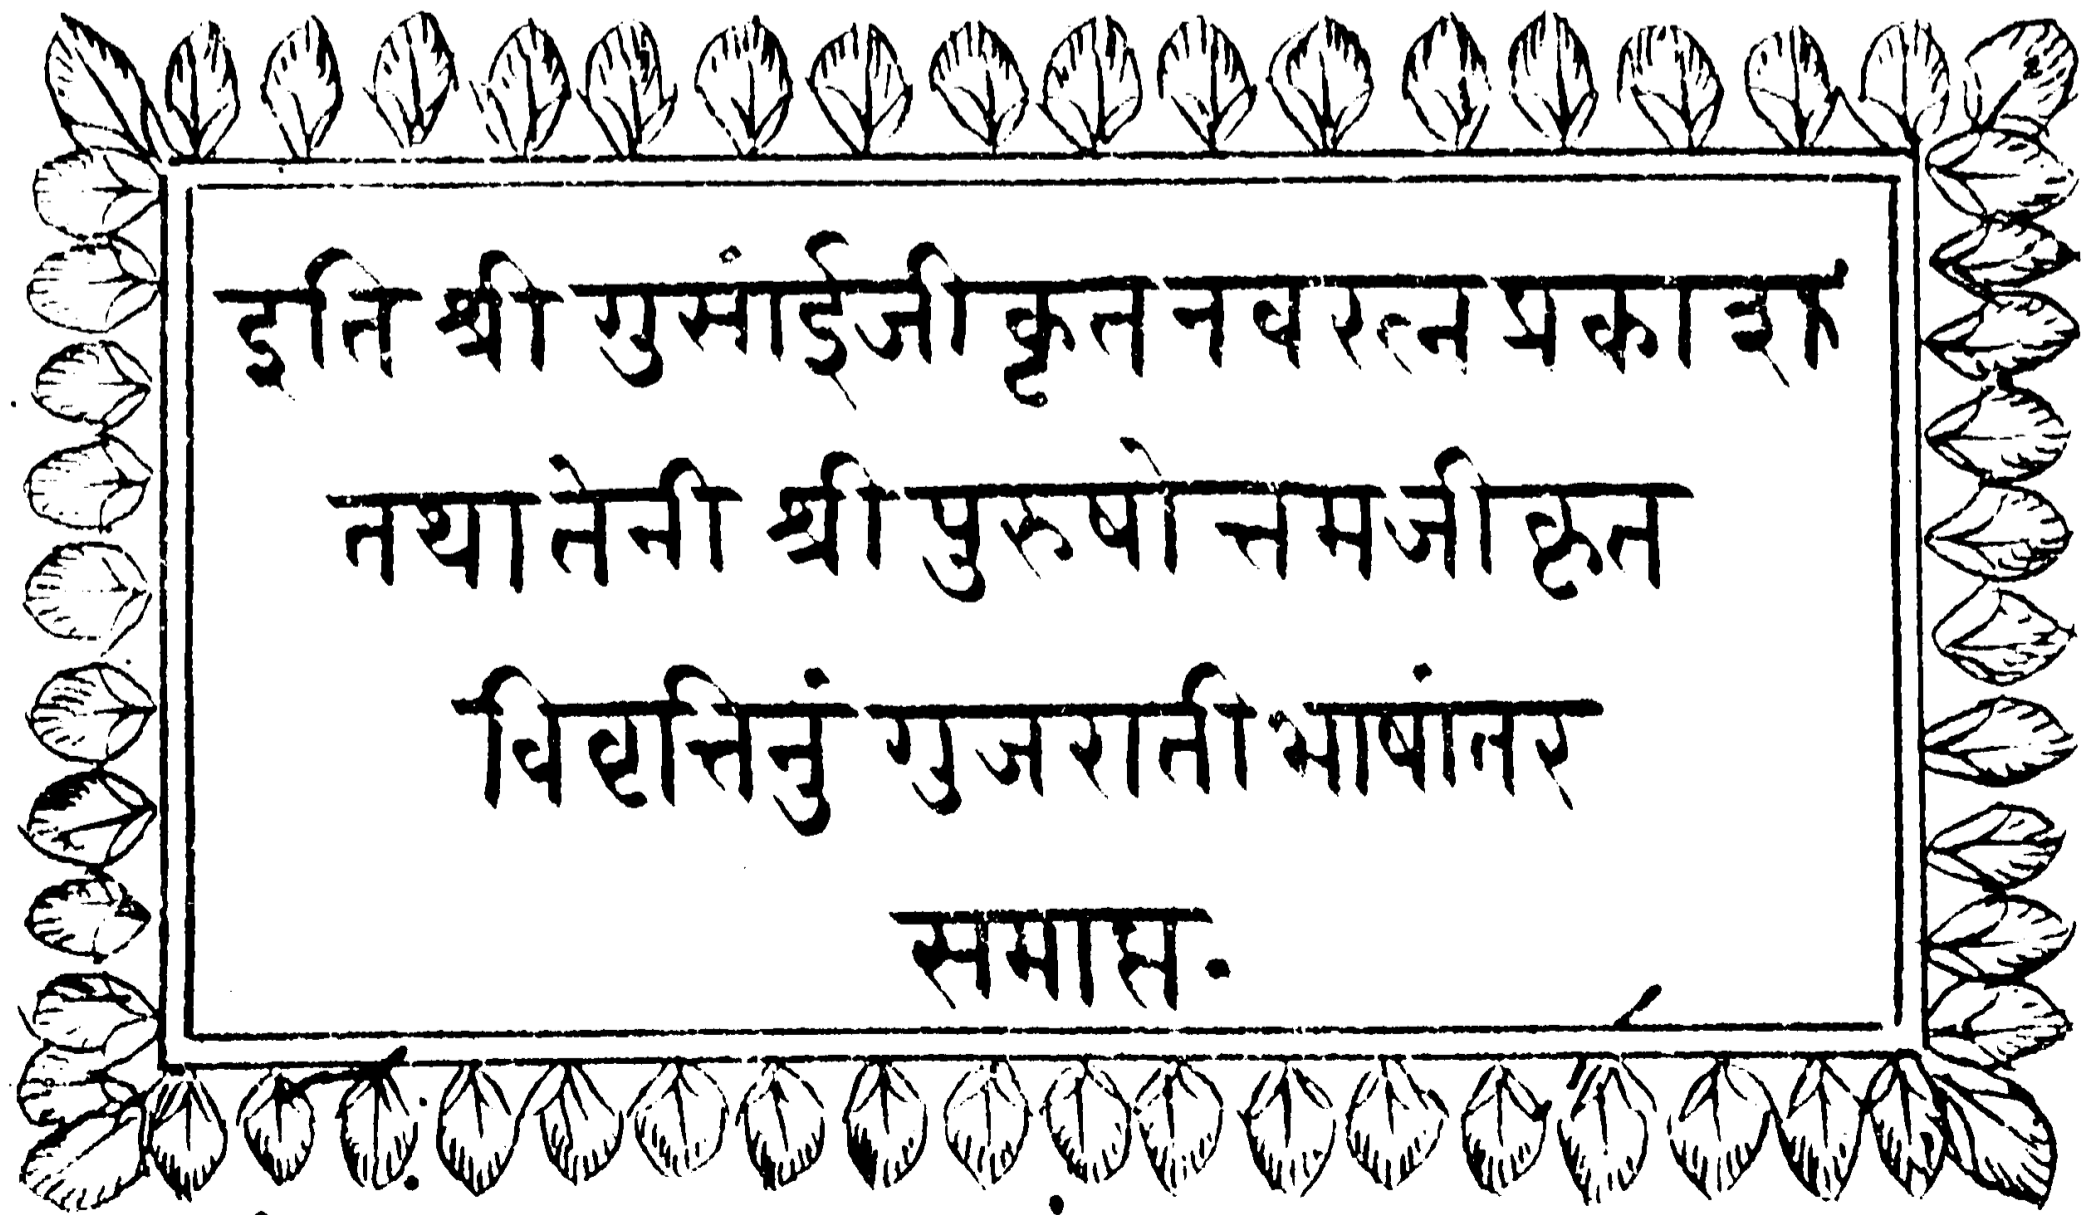 इति श्री गुसांईजी कृत नवरत्न प्रकाश
तथा तेनी श्री पुरुषोत्तमजी कृत
विवृत्तिनुं गुजराती भाषांतर
समाप्त.